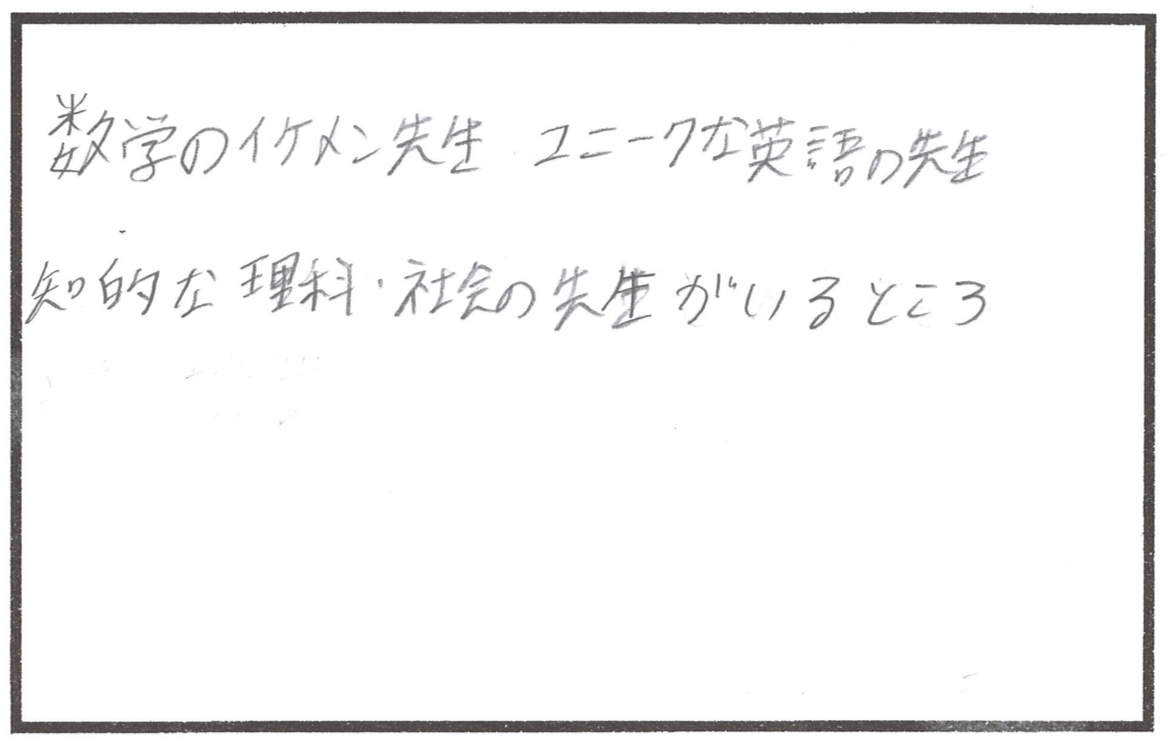 数学のイケメン先生 ユニークな英語の先生
知的な理科・社会の先生がいるところ